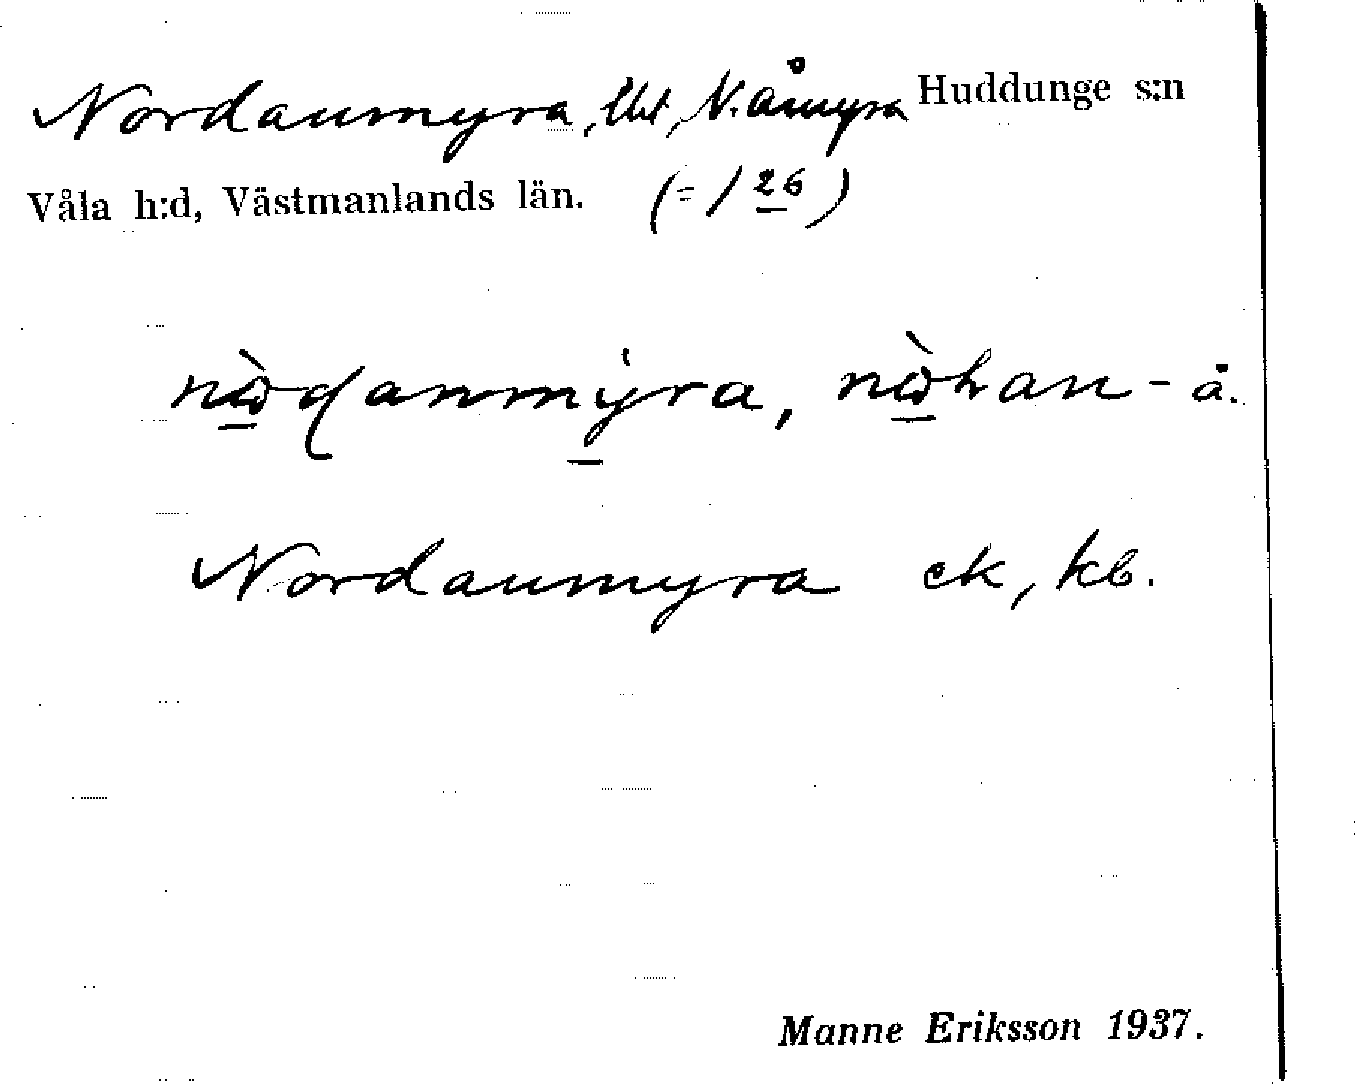 Nordanmyra, lht, N. åmyra Huddunge s:n
Våla h:d, Västmanlands län. (= 1 26)
Nordanmyra ek, kb.
Manne Eriksson 1937.